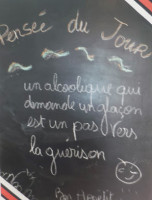 Pensée du Jour
un alcoolique qui
demande un glaçon
est un pas vers
la guérison
Bon Appétit